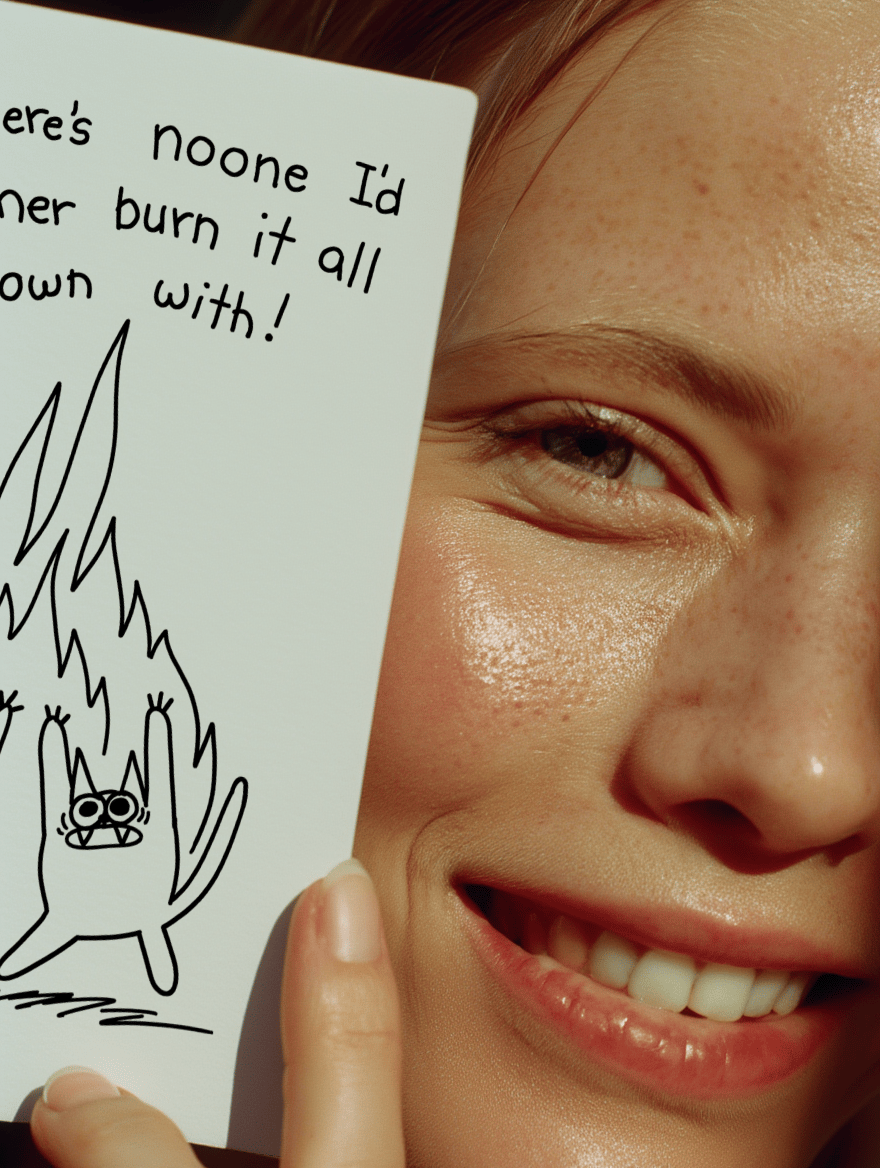 ere's noone I'd
her burn it all
own with!